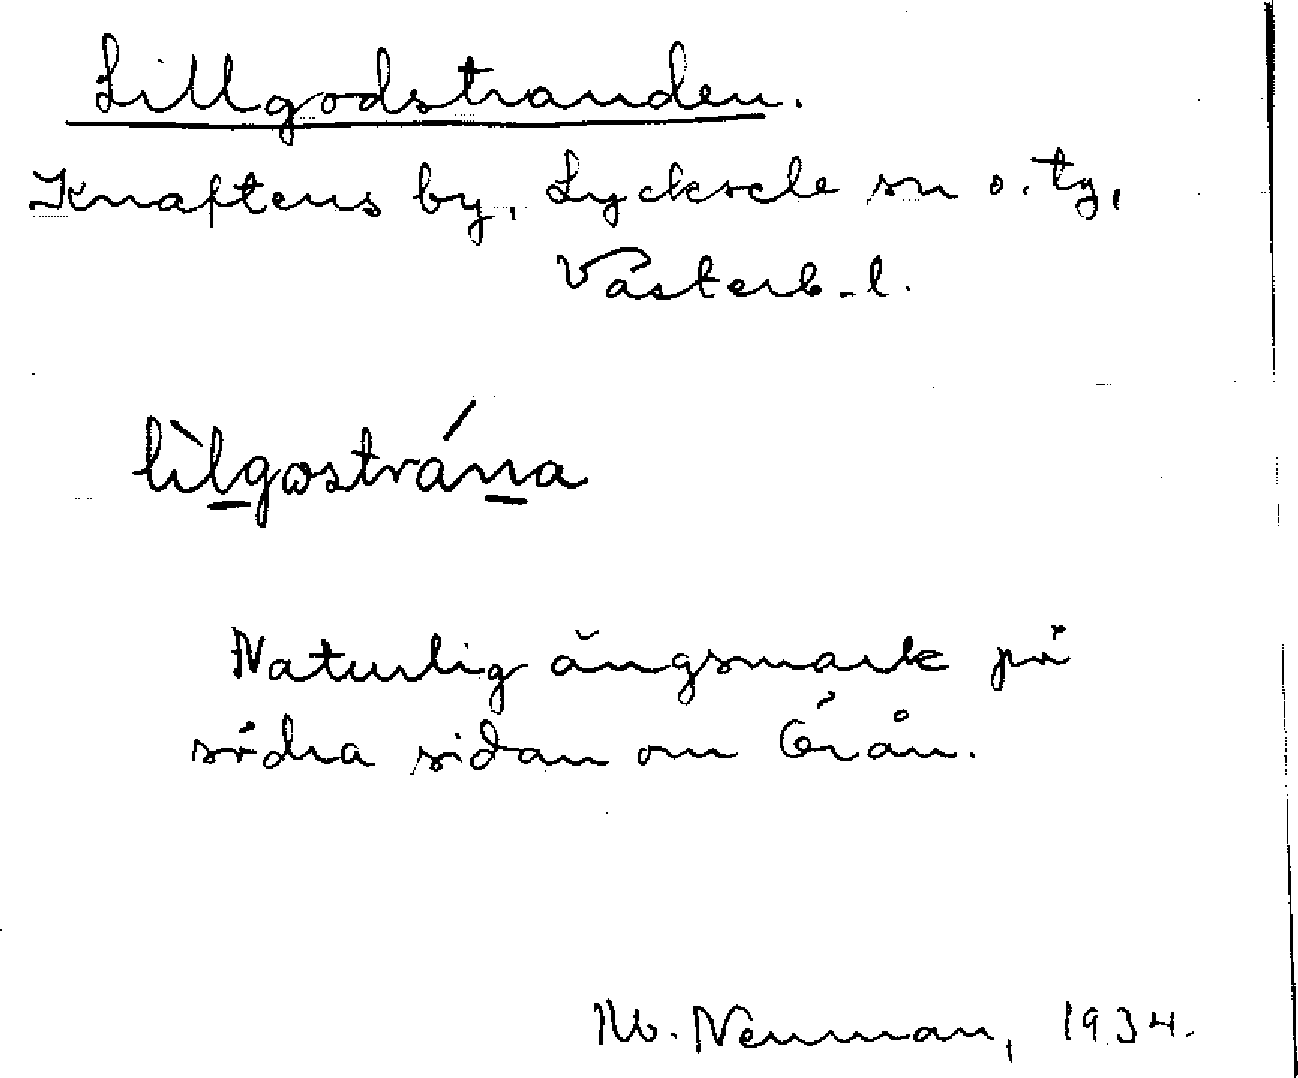 Lillgodstranden.
Knaftens by, Lycksele sn o. tg,
Västerb. l.
lìlgostrána
Naturlig ängsmark på
södra sidan om Örån.
Neuman, 1934.